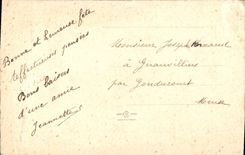 Bonne et heureuse fête
affectueuses pensées
Bons baisers
d'une amie
Jeannette
Monsieur Joseph
à
par Gondrecourt
Meuse